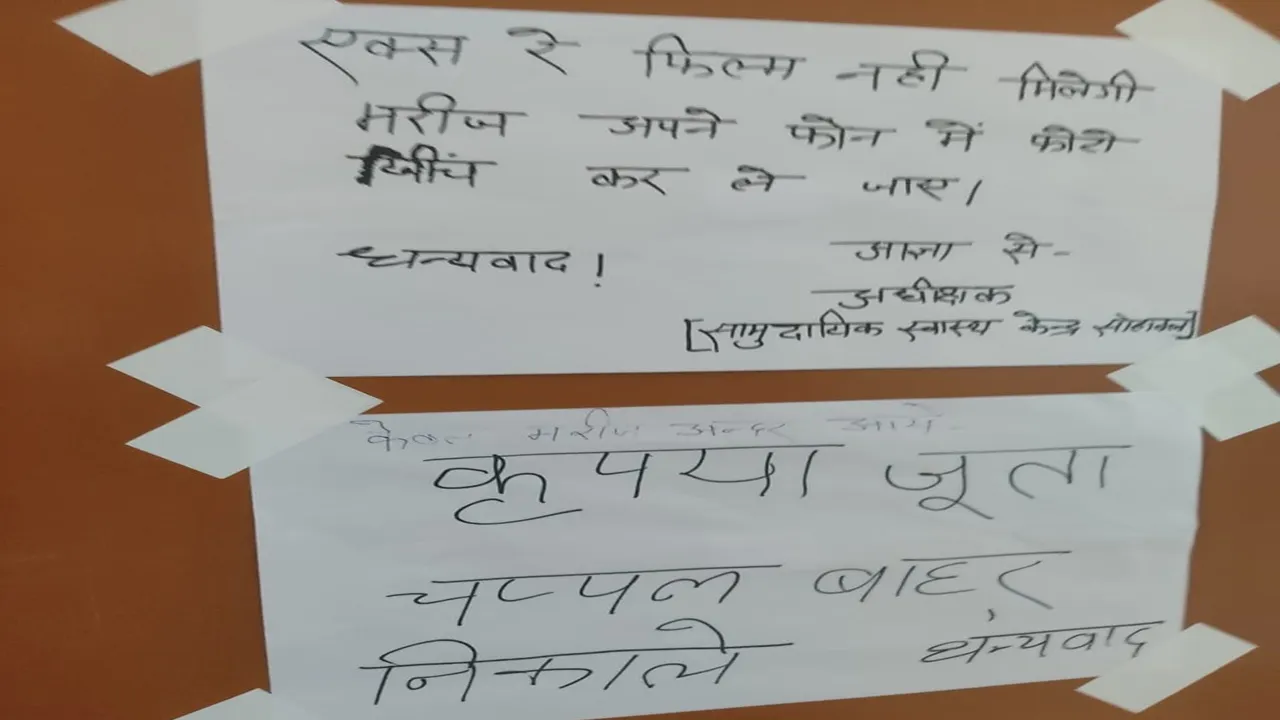 एक्स रे फिल्म नही मिलेगी
मरीज अपने फोन में फोटो
खिंच कर ले जाए।
धन्यवाद! आज्ञा से-
अधीक्षक
[सामुदायिक स्वास्थ केन्द्र सोहावल]
केवल मरीज अन्दर आये-
कृपया जूता
चप्पल बाहर
निकाले धन्यवाद